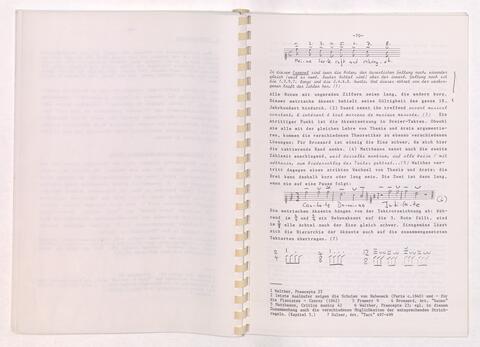 -70-
1. 2. 3. 4. 5. 6. 7. 8.
In diesem Exempel sind zwar die Noten, der äusserlichen Geltung nach, einander
gleich
die 1.3.5.7. lange und die 2.4.6.8. kurtz. Und dieses rühret von der verbor-
genen Kraft der Zahlen her. (1)
Alle Noten mit ungeraden Ziffern seien lang, die andern kurz.
Dieser metrische Akzent behielt seine Gültigkeit das ganze 18.
Jahrhundert hindurch. (2) Suard nennt ihn treffend accent musical
constant & inhérent à tout morceau de musique mesurée. (3) Ein
strittiger Punkt ist die Akzentsetzung in Dreier-Takten. Obwohl
sie alle mit der gleichen Lehre von Thesis und Arsis argumentie-
ren, kommen die verschiedenen Theoretiker zu ebenso verschiedenen
Lösungen: Für Brossard ist einzig die Eins schwer, da sich hier
die taktierende Hand senke. (4) Mattheson nennt auch die zweite
Zählzeit anschlagend, weil
(5) Walther ver-
tritt dagegen einen strikten Wechsel von Thesis und Arsis: die
Drei kann deshalb kurz oder lang sein. Die Zwei ist dann lang,
wenn sie auf eine Pause folgt:
Cantate Domino Jubilate (6)
Die metrischen Akzente hängen von der Taktvorzeichnung ab: Wäh-
rend in 3/4 und 3/2 ein Nebenakzent auf die 3. Note fällt, sind
in alle Achtel nach der Eins gleich schwer. Sinngemäss lässt
sich die Hierarchie der Akzente auch auf die zusammengesetzten
Taktarten übertragen. (7)
2 4 6 8 12 8
1 Walther, Praecepta 23
2 Letzte Ausläufer zeigen die Schulen von Habeneck (Paris c.1840) und - für
die Pianisten - Czerny (1842) 3 Framery 9 4 Brossard, Art.
5 Mattheson, Critica musica 42 6 Walther, Praecepta 23; vgl. in diesem
Zusammenhang auch die verschiedenen Möglichkeiten der entsprechenden Strich-
regeln. (Kapitel 5.) 7 Sulzer, Art. "Takt" 497-499